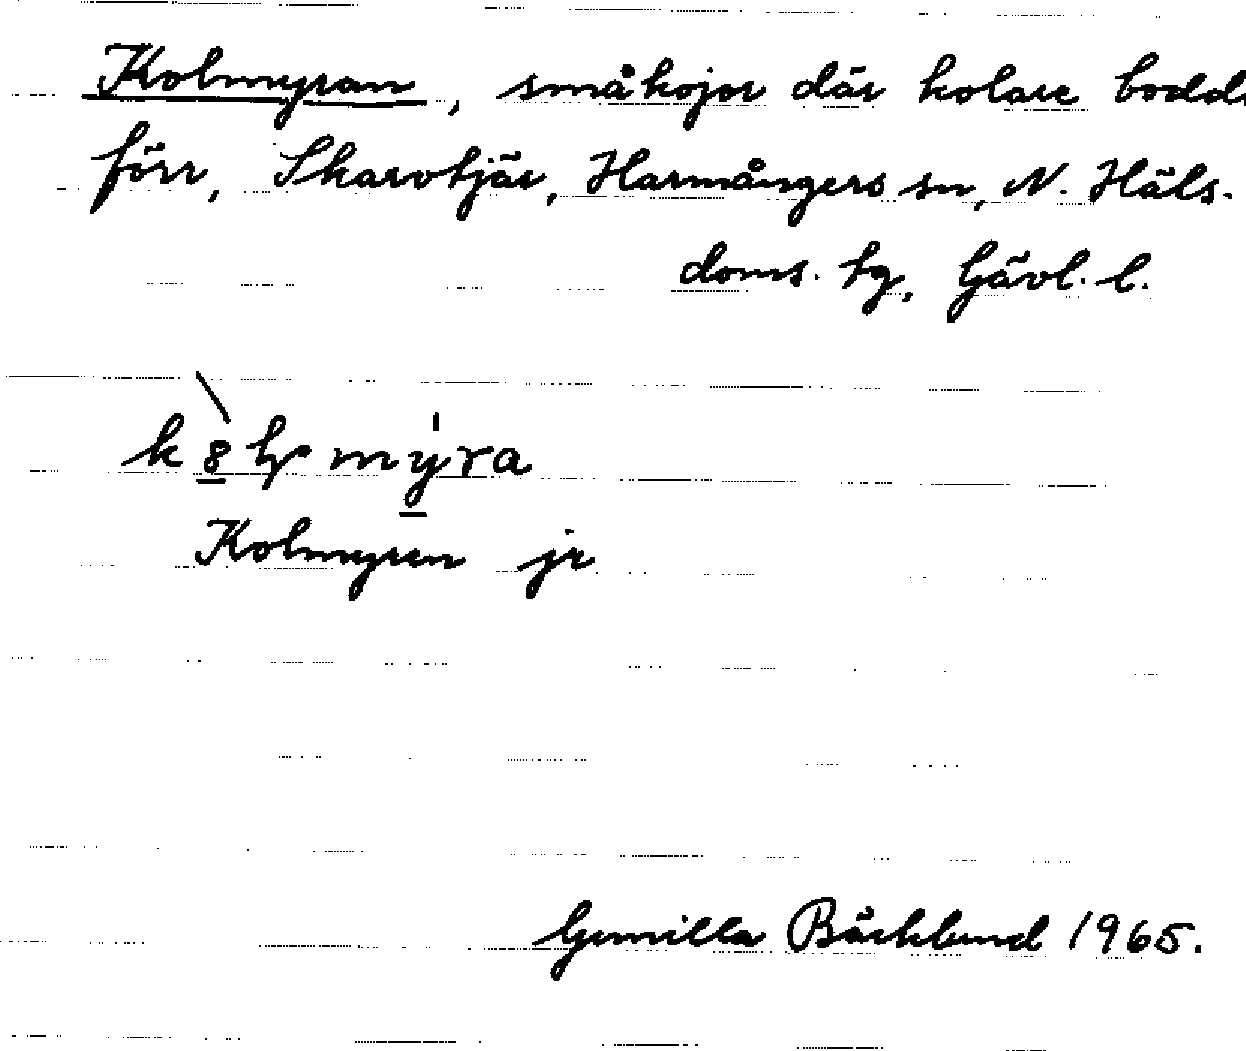 Kolmyran, småkojor där kolare bodde
förr, Skarvtjär, Harmångers sn, N. Häls.
doms. hg, Gävl. l.
Kolmyren jr
Gunilla Bäcklund 1965.